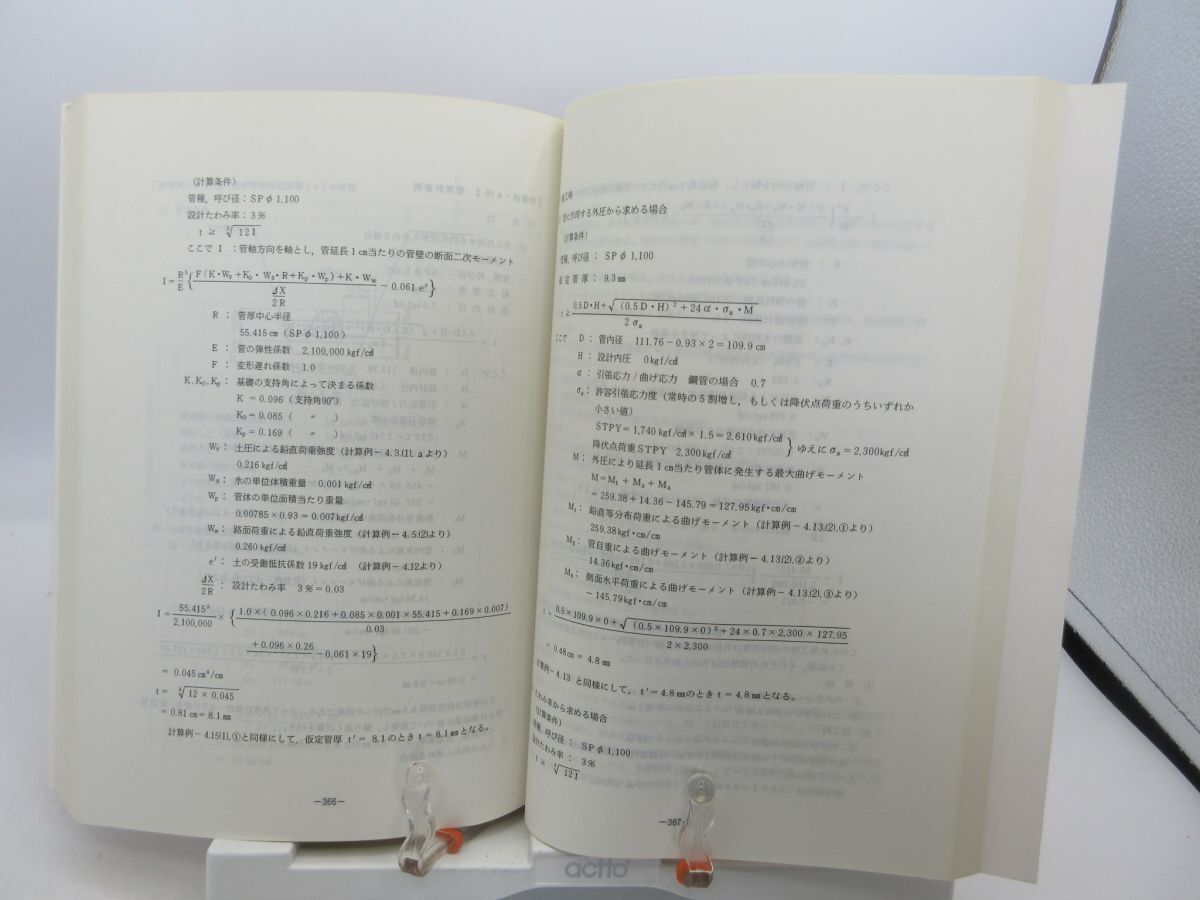 (計算条件)
管種，呼び径：SPφ1,100
設計たわみ率：3％
t ≧ ³√12I
ここで I ：管軸方向を軸とし，管延長1cm当たりの管壁の断面二次モーメント
I=R³/E{F(K・Wv+K₀・W₀・R+Kp・Wp)+K・Ww/(ΔX/2R) −0.061 e′}
R：管厚中心半径
55.415cm（SPφ1,100）
E：管の弾性係数 2,100,000kgf/cm²
F：変形遅れ係数 1.0
K,K₀,Kp：基礎の支持角によって決まる係数
K =0.096(支持角90°)
K₀=0.085( 〃 )
Kp=0.169( 〃 )
Wv：土圧による鉛直荷重強度（計算例−4.3(1)，aより）
0.216kgf/cm²
W₀：水の単位体積重量 0.001kgf/cm³
Wp：管体の単位面積当たり重量
0.00785×0.93=0.007kgf/cm²
Ww：路面荷重による鉛直荷重強度（計算例−4.5(2)より）
0.260kgf/cm²
e′：土の受働抵抗係数19kgf/cm²（計算例−4.12より）
ΔX/2R：設計たわみ率 3％=0.03
I=55.415³/2,100,000×{1.0×(0.096×0.216+0.085×0.001×55.415+0.169×0.007)/0.03
+0.096×0.26 −0.061×19}
=0.045cm⁴/cm
t= ³√12×0.045
=0.81cm=8.1mm
計算例−4.15(1)，①と同様にして，仮定管厚 t′= 8.1のとき t=8.1mmとなる。
—366—
工時
に作用する外圧から求める場合
(計算条件)
管種，呼び径： SPφ1,100
仮定管厚：9.3mm
t≧ 0.5D・H+√(0.5D・H)²+24α・σa・M / 2σa
ここで D：管内径 111.76−0.93×2=109.9cm
H：設計内圧 0kgf/cm²
α：引張応力/曲げ応力 鋼管の場合 0.7
σa：許容引張応力度（常時の5割増し，もしくは降伏点荷重のうちいずれか
小さい値）
STPY=1,740kgf/cm²×1.5=2,610kgf/cm²
降伏点荷重STPY 2,300kgf/cm² } ゆえにσa=2,300kgf/cm²
M：外圧により延長1cm当たり管体に発生する最大曲げモーメント
M=M₁+M₃+M₄
=259.38+14.36−145.79=127.95kgf・cm/cm
M₁：鉛直等分布荷重による曲げモーメント（計算例−4.13(2)，①より）
259.38kgf・cm/cm
M₃：管自重による曲げモーメント（計算例−4.13(2)，②より）
14.36kgf・cm/cm
M₄：側面水平荷重による曲げモーメント（計算例−4.13(2)，③より）
−145.79kgf・cm/cm
t= 0.5×109.9×0+√(0.5×109.9×0)²+24×0.7×2,300×127.95 / 2×2,300
=0.48cm=4.8mm
計算例−4.13 と同様にして，t′=4.8mmのとき t=4.8mmとなる。
たわみ率から求める場合
(計算条件)
管種，呼び径： SPφ1,100
設計たわみ率： 3％
t≧ ³√12I
—367—
actto